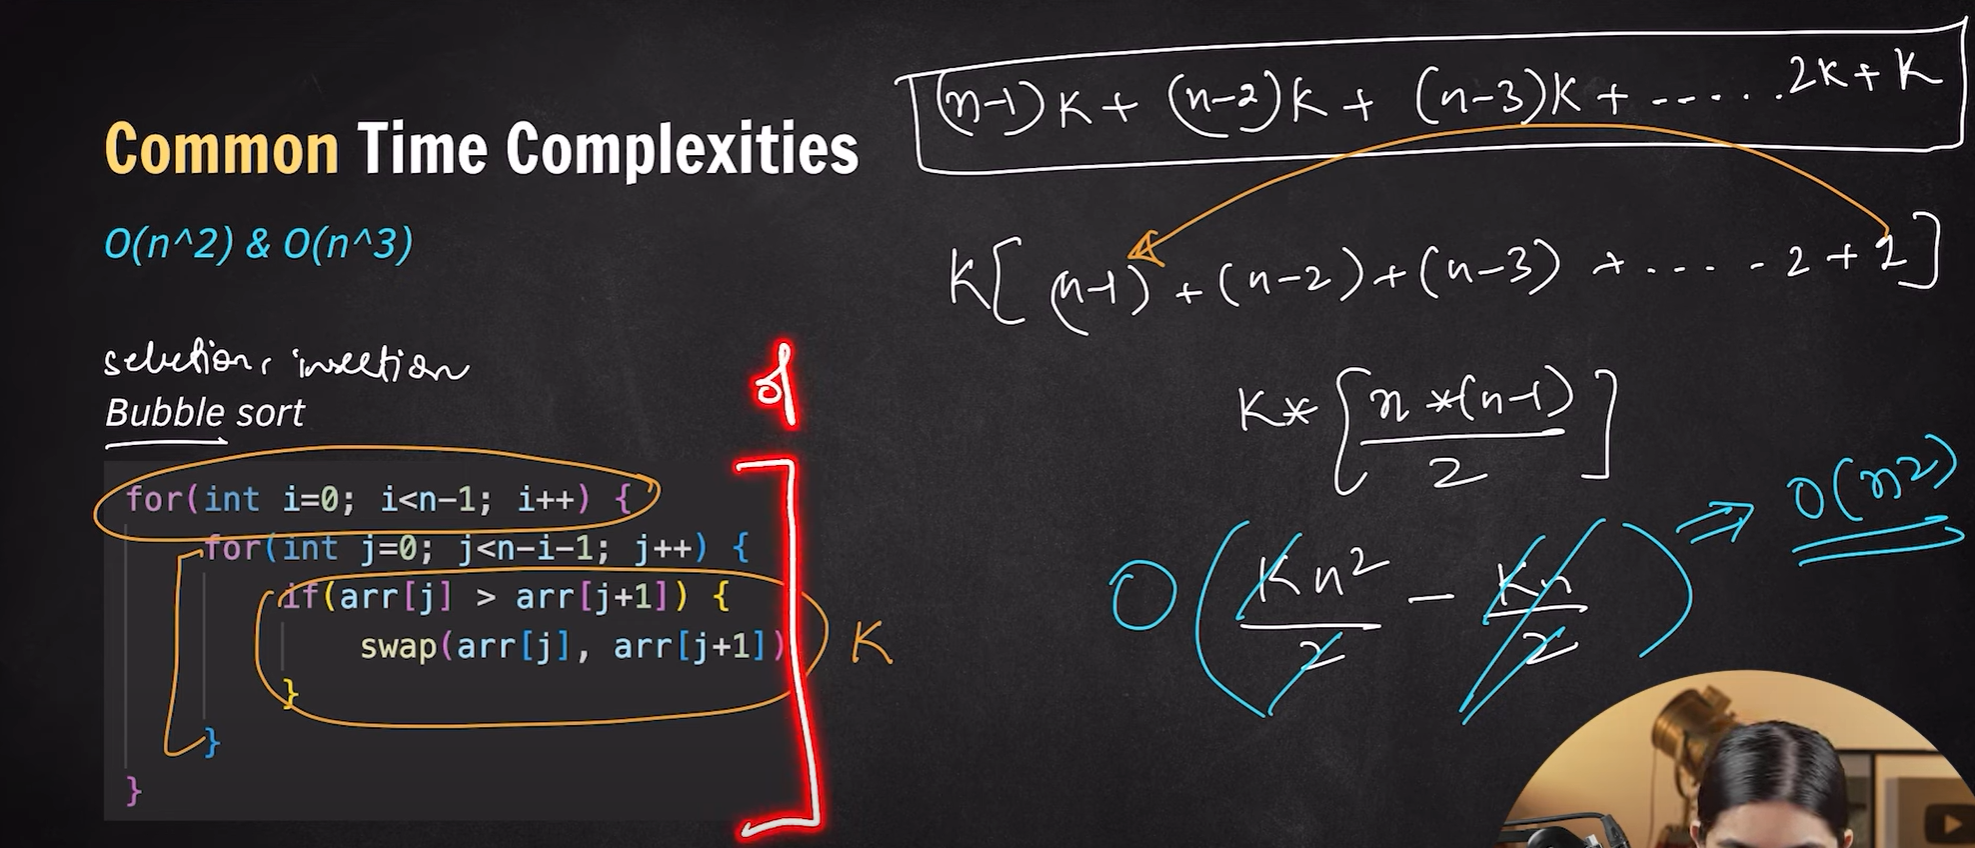 Common Time Complexities
O(n^2) & O(n^3)
selection, insertion
Bubble sort
for(int i=0; i<n-1; i++) {
for(int j=0; j<n-i-1; j++) {
if(arr[j] > arr[j+1]) {
swap(arr[j], arr[j+1])
}
}
}
K
(n-1)K + (n-2)K + (n-3)K + ------ 2K + K
K[ (n-1) + (n-2) + (n-3) + ---- 2 + 1 ]
K* [ n*(n-1) / 2 ]
O( Kn² / 2 - Kn / 2 ) ⇒ O(n²)